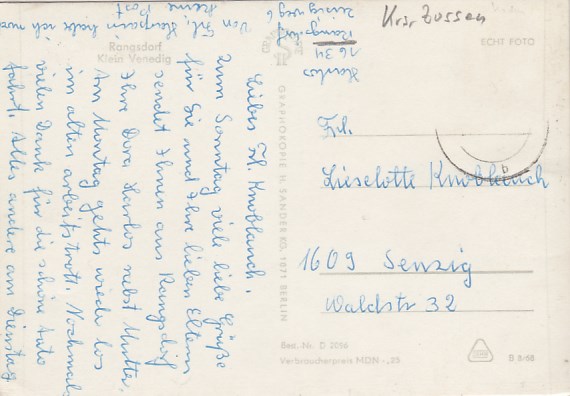 Rangsdorf
Klein Venedig
ECHT FOTO
Krs. Zossen
Harlos
1634
Rangsdorf
Liebes Frl. Knoblauch,
zum Sonntag viele liebe Grüße
für Sie und Ihre lieben Eltern
sendet Ihnen aus Rangsdorf
Ihre Dora Harlos nebst Mutter.
Am Montag gehts wieder los
im alten Arbeitstrott. Nochmals
vielen Dank für die schöne Auto
fahrt. Alles andere am Dienstag
Von Frl. habe ich
keine Post
GRAPHOKOPIE H. SANDER KG, 1071 BERLIN
Frl.
Lieselotte Knoblauch
1609 Senzig
Waldstr 32
Best.-Nr. D 2086
Verbraucherpreis MDN -,25
B 8-68